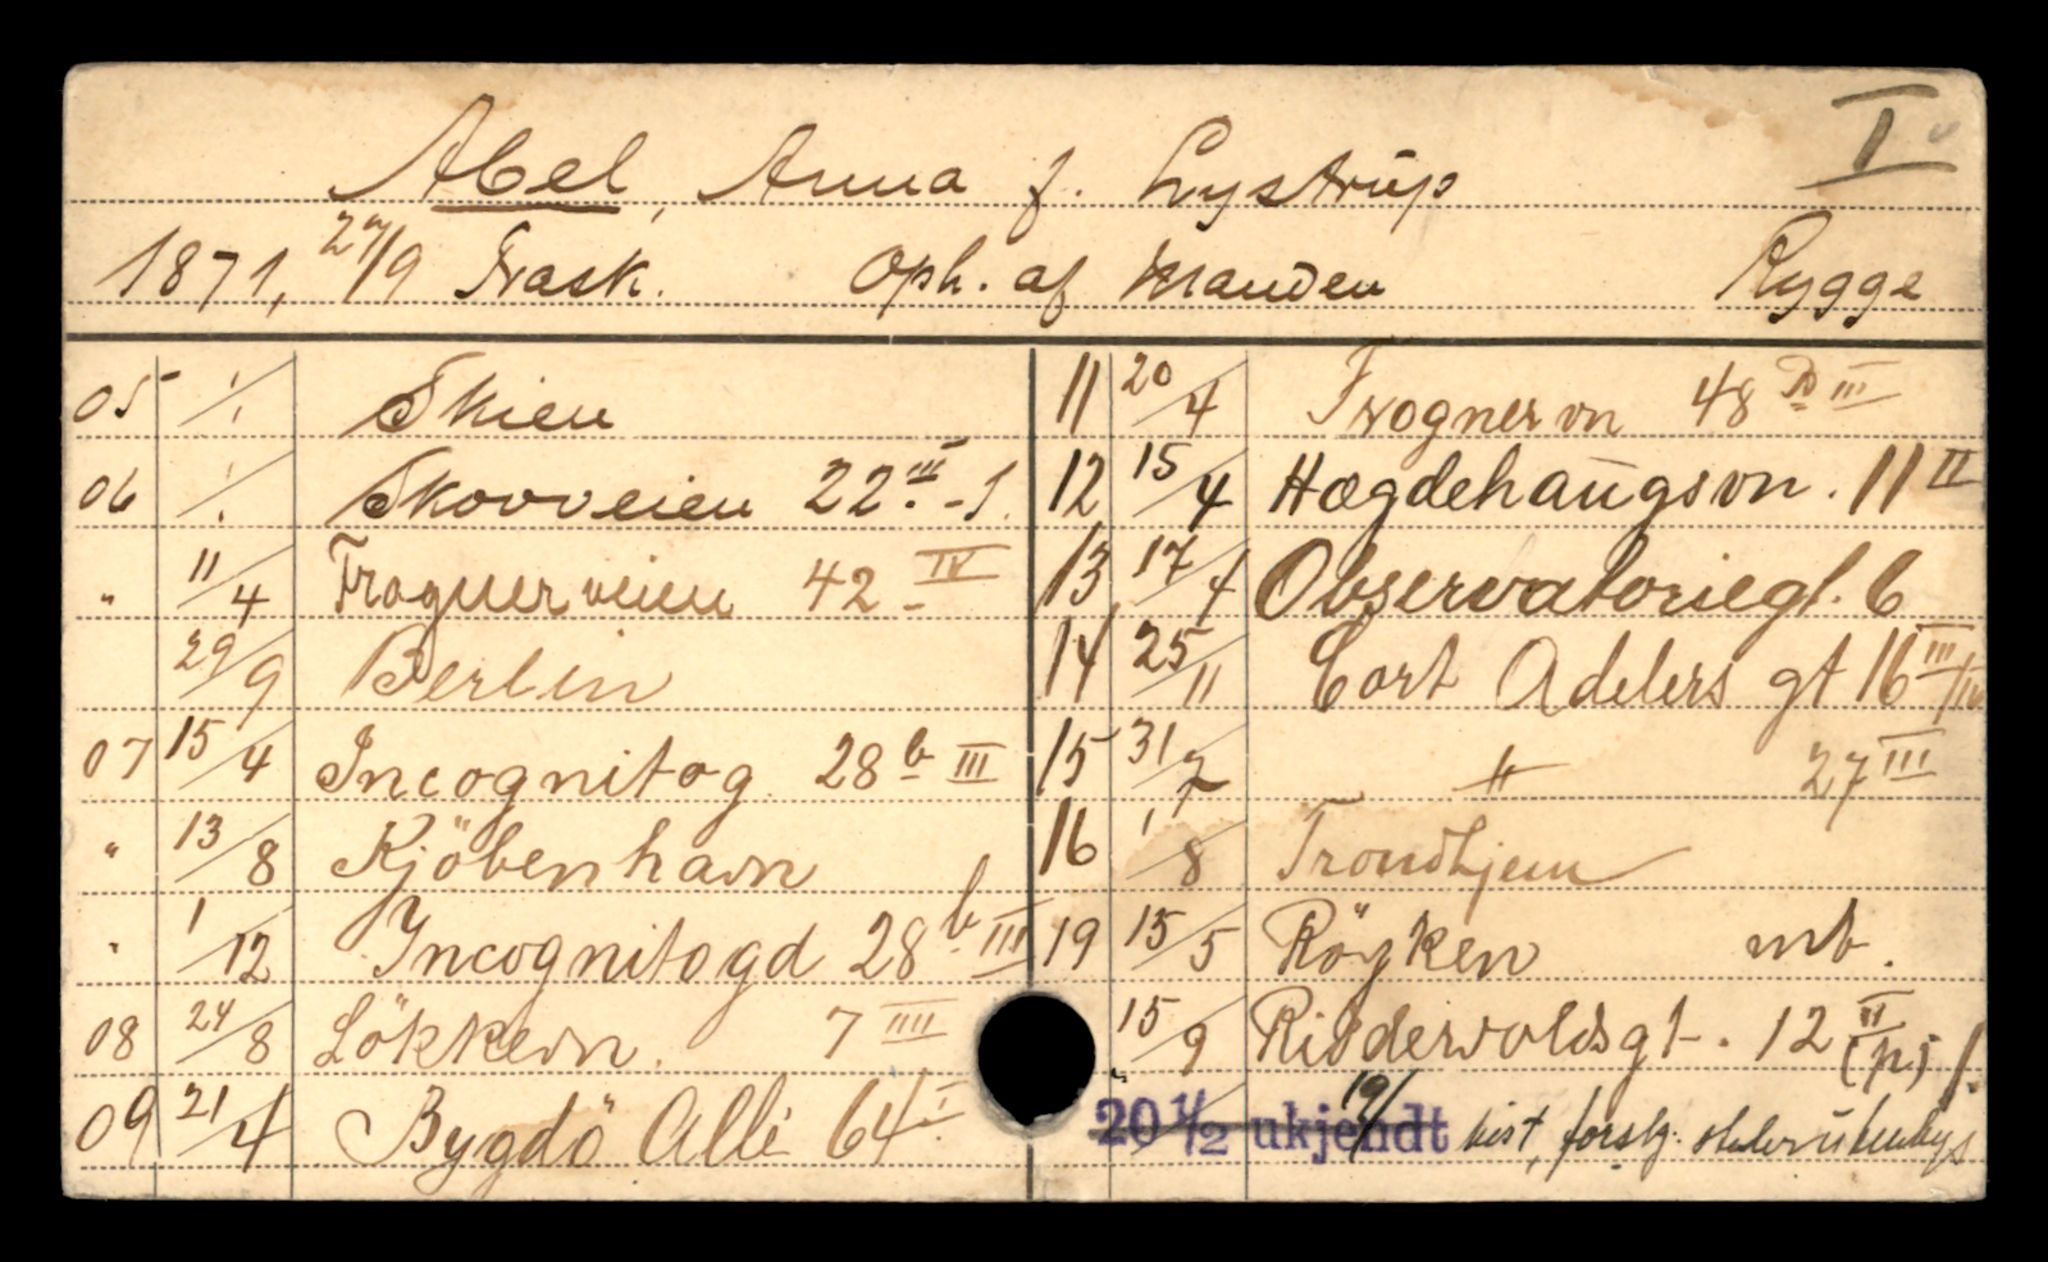 I
Abel, Anna f. Lystrup
1871, 27/9 Frask. Oph. af Manden Rygge
05 1/1 Skien
06 1/1 Skovveien 22 III - S.
" 11/4 Frognerveien 42 - IV
29/9 Berlin
07 15/4 Incognitog 28 b III
" 13/8 Kjöbenhavn
" 1/12 Incognitogd 28 b III
08 24/8 Lökkevn. 7 IIII
09 21/4 Bygdö Allé 64 I
11 20/4 Frognervn 48 B III
12 15/4 Hægdehaugsvn. 11 II
13 17/4 Observatoriegt. 6
14 25/11 Cort Adelers gt 16 III/IV
15 31/7 " 27 III
16 1/8 Trondhjem
19 15/5 Röyken mb.
" 15/9 Riddervoldsgt. 12 II (p)
20 1/2 ukjendt 19/1 hist, forslg.